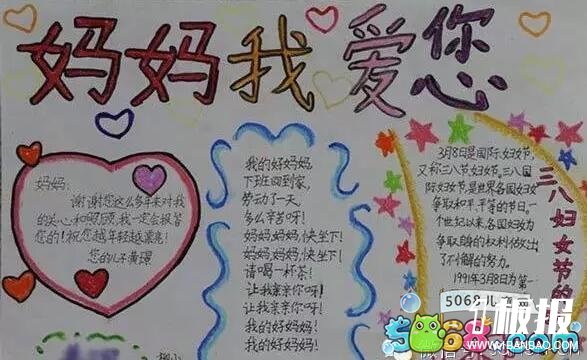 妈妈我爱您
妈妈:
谢谢您这么多年来对我
的关心和照顾,我一定会报答
您的!祝您越年轻越漂亮!
您的儿子黄璟
我的好妈妈,
下班回到家,
劳动了一天,
多么辛苦呀!
妈妈,妈妈,快坐下!
妈妈,妈妈,快坐下!
请喝一杯茶!
让我亲亲你呀!
让我亲亲你呀!
我的好妈妈!
我的好妈妈!
3月8日是国际妇女节,
又称三八节,妇女节。三八国
际妇女节,是世界各国妇女
争取和平、平等的节日。一
个世纪以来,各国妇女为
争取自身的权利做出
了不懈的努力。
1991年3月8日为第一
三八妇女节的
5068儿童网
板报
WWW.BANBAO.COM